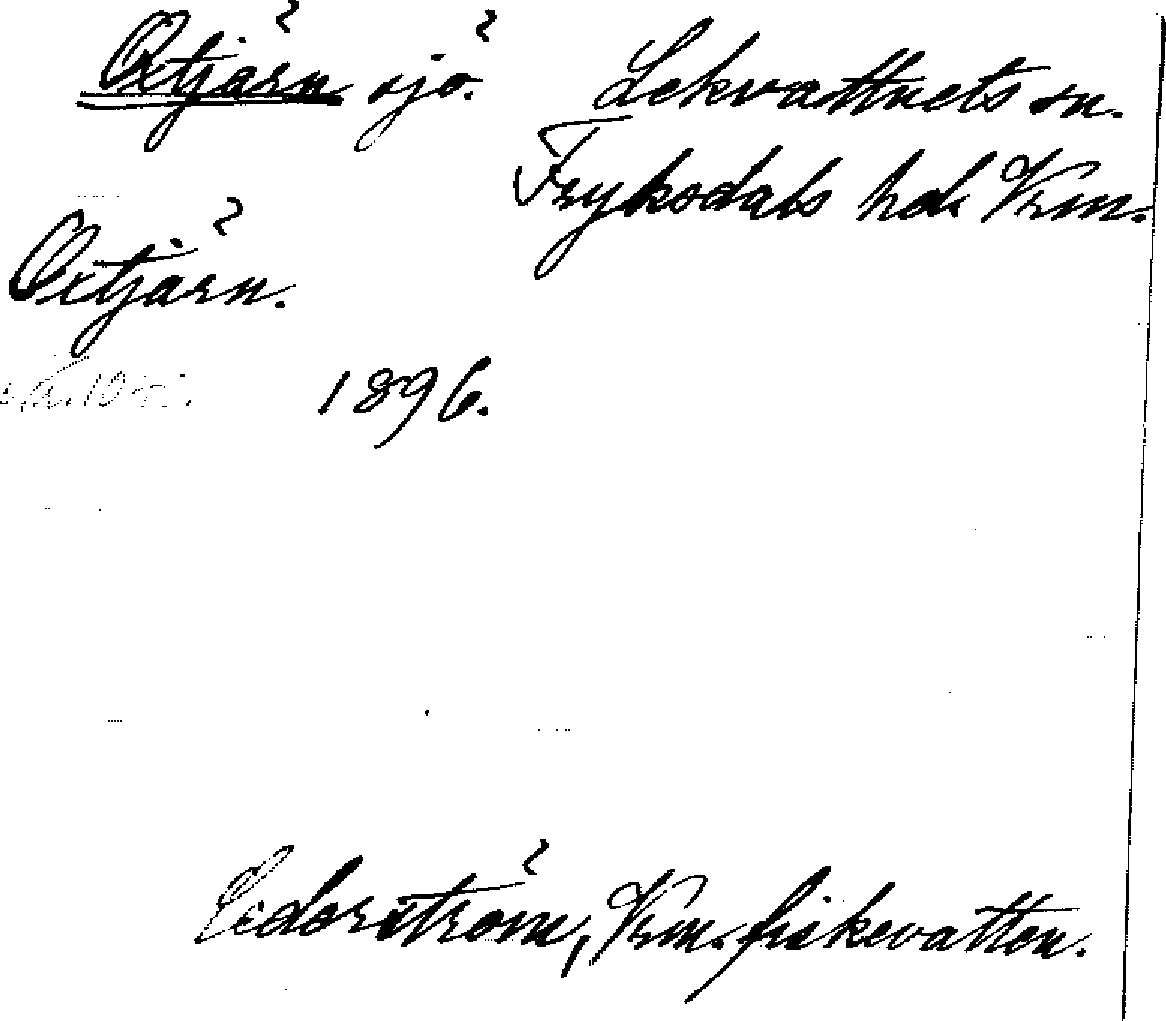 Oxtjärn sjö. Lekvattnets sn.
Fryksdals hd. Vrm.
Oxtjärn.
1896.
Cederström, Vrm. fiskevatten.